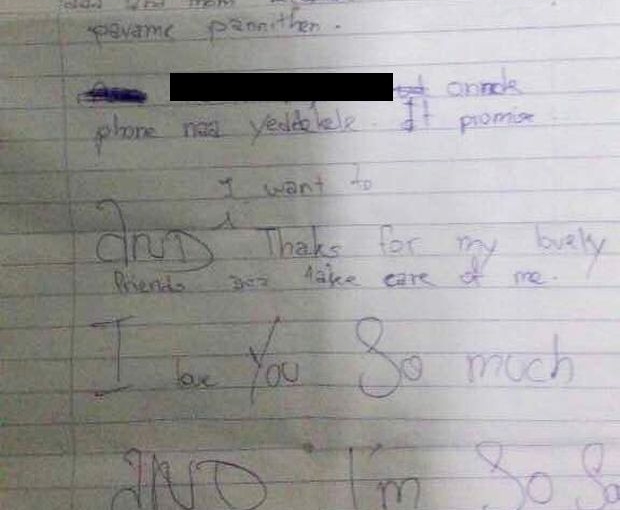 pavame pannithen.
annode
phone naa yeddakele. It promise
I want to
AND Thaks for my lovely
friends take care of me.
I love You So much
AND I'm So So